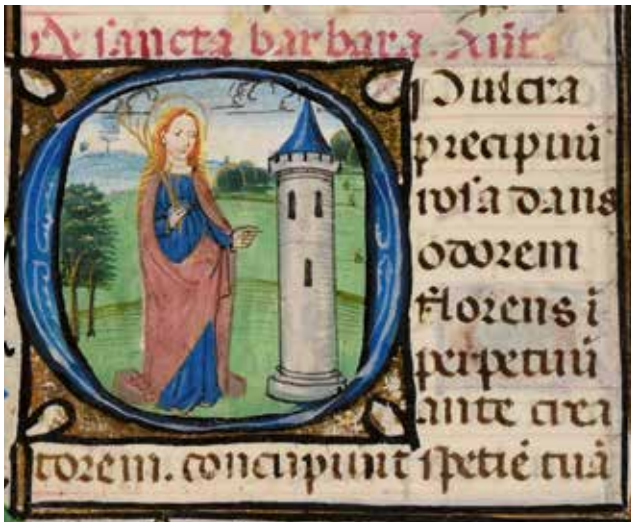 De sancta barbara. Añt.
O Pulcra
precipuū
rosa dans
odorem
florens i
perpetuū
ante crea
torem. concupiuit spetiē tuā